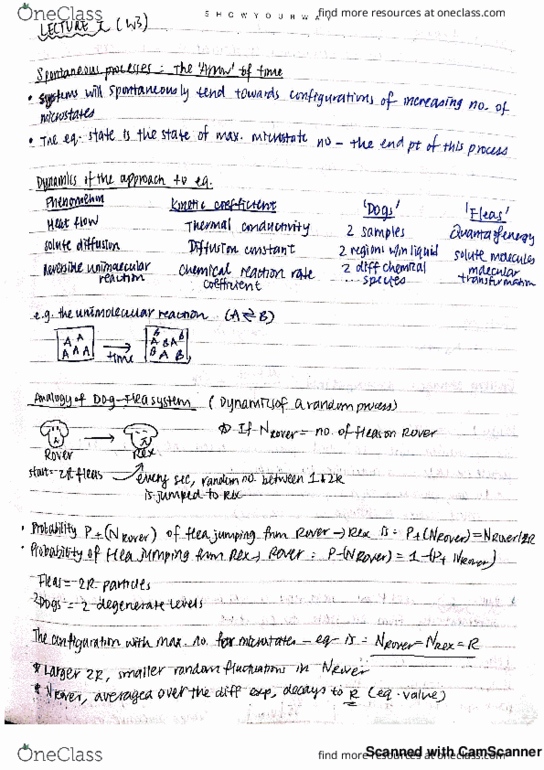 OneClass
SHOWYOURWA
find more resources at oneclass.com
LECTURE 2 (W3)
Spontaneous processes: The 'Arrow' of time
• Systems will spontaneously tend towards configurations of increasing no. of
microstates
• The eq. state is the state of max. microstate no – the end pt of this process
Dynamics of the approach to eq.
Phenomenon Kinetic coefficient 'Dogs' 'Fleas'
Heat flow Thermal conductivity 2 samples Quanta of energy
solute diffusion Diffusion constant 2 regions w/in liquid solute molecules
Reversible unimolecular reaction chemical reaction rate coefficient 2 diff chemical species molecular transformation
e.g. the unimolecular reaction (A ⇌ B)
A A A A A → time B A B A B B A B
Analogy of Dog-Flea system (Dynamics of a random process)
If N Rover = no. of fleas on Rover
Rover → Rex
start = 2R fleas every sec, random no. between 1 & 2R
is jumped to Rex
• Probability P+(N Rover) of flea jumping from Rover → Rex is: P+(N Rover) = N Rover/2R
• Probability of flea jumping from Rex → Rover: P-(N Rover) = 1-(P+ N Rover)
Fleas = 2R particles
2 Dogs = 2 degenerate levels
The configuration with max. no. microstates – eq is: N Rover = N Rex = R
* Larger 2R, smaller random fluctuations in N Rover
* N Rover, averaged over the diff exp, decays to R (eq. value)
OneClass
find more resources at oneclass.com
Scanned with CamScanner